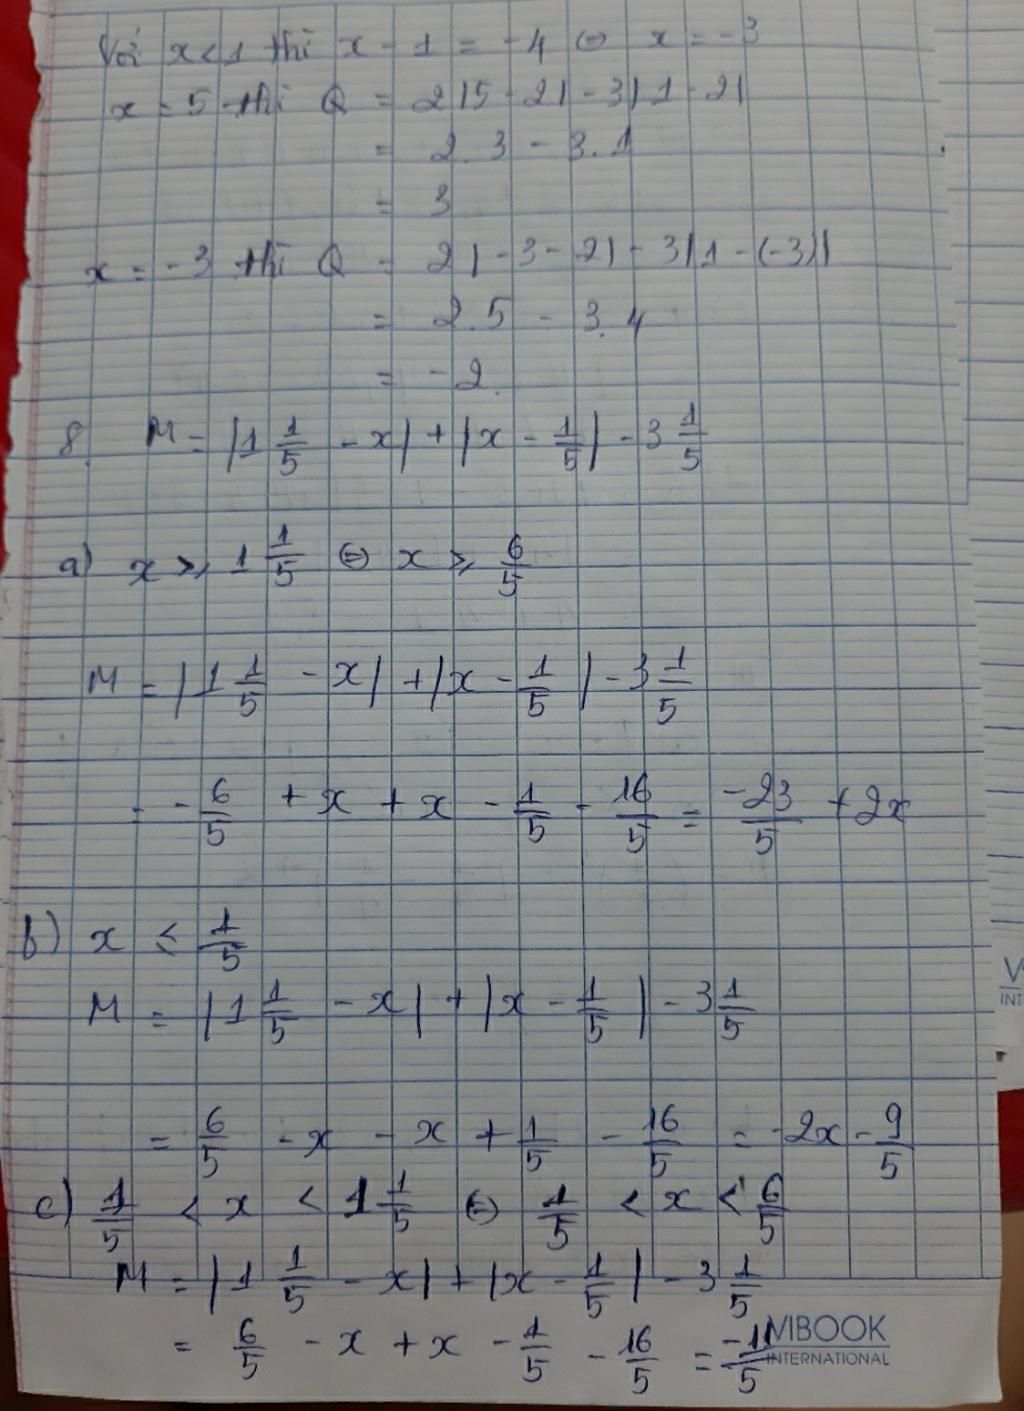 Với x < 1 thì x - 1 = -4 ⇔ x = -3
x = 5 thì Q = 2|5 - 2| - 3|1 - 2|
= 2.3 - 3.1
= 3
x = -3 thì Q = 2|-3 - 2| - 3|1 - (-3)|
= 2.5 - 3.4
= -2.
8. M = |1 1/5 - x| + |x - 1/5| - 3 1/5
a) x ≥ 1 1/5 ⇔ x ≥ 6/5
M = |1 1/5 - x| + |x - 1/5| - 3 1/5
= -6/5 + x + x - 1/5 - 16/5 = -23/5 + 2x
b) x ≤ 1/5
M = |1 1/5 - x| + |x - 1/5| - 3 1/5
= 6/5 - x - x + 1/5 - 16/5 = -2x - 9/5
c) 1/5 < x < 1 1/5 ⇔ 1/5 < x < 6/5
M = |1 1/5 - x| + |x - 1/5| - 3 1/5
= 6/5 - x + x - 1/5 - 16/5 = -11/5
VIBOOK
INTERNATIONAL
V
INT